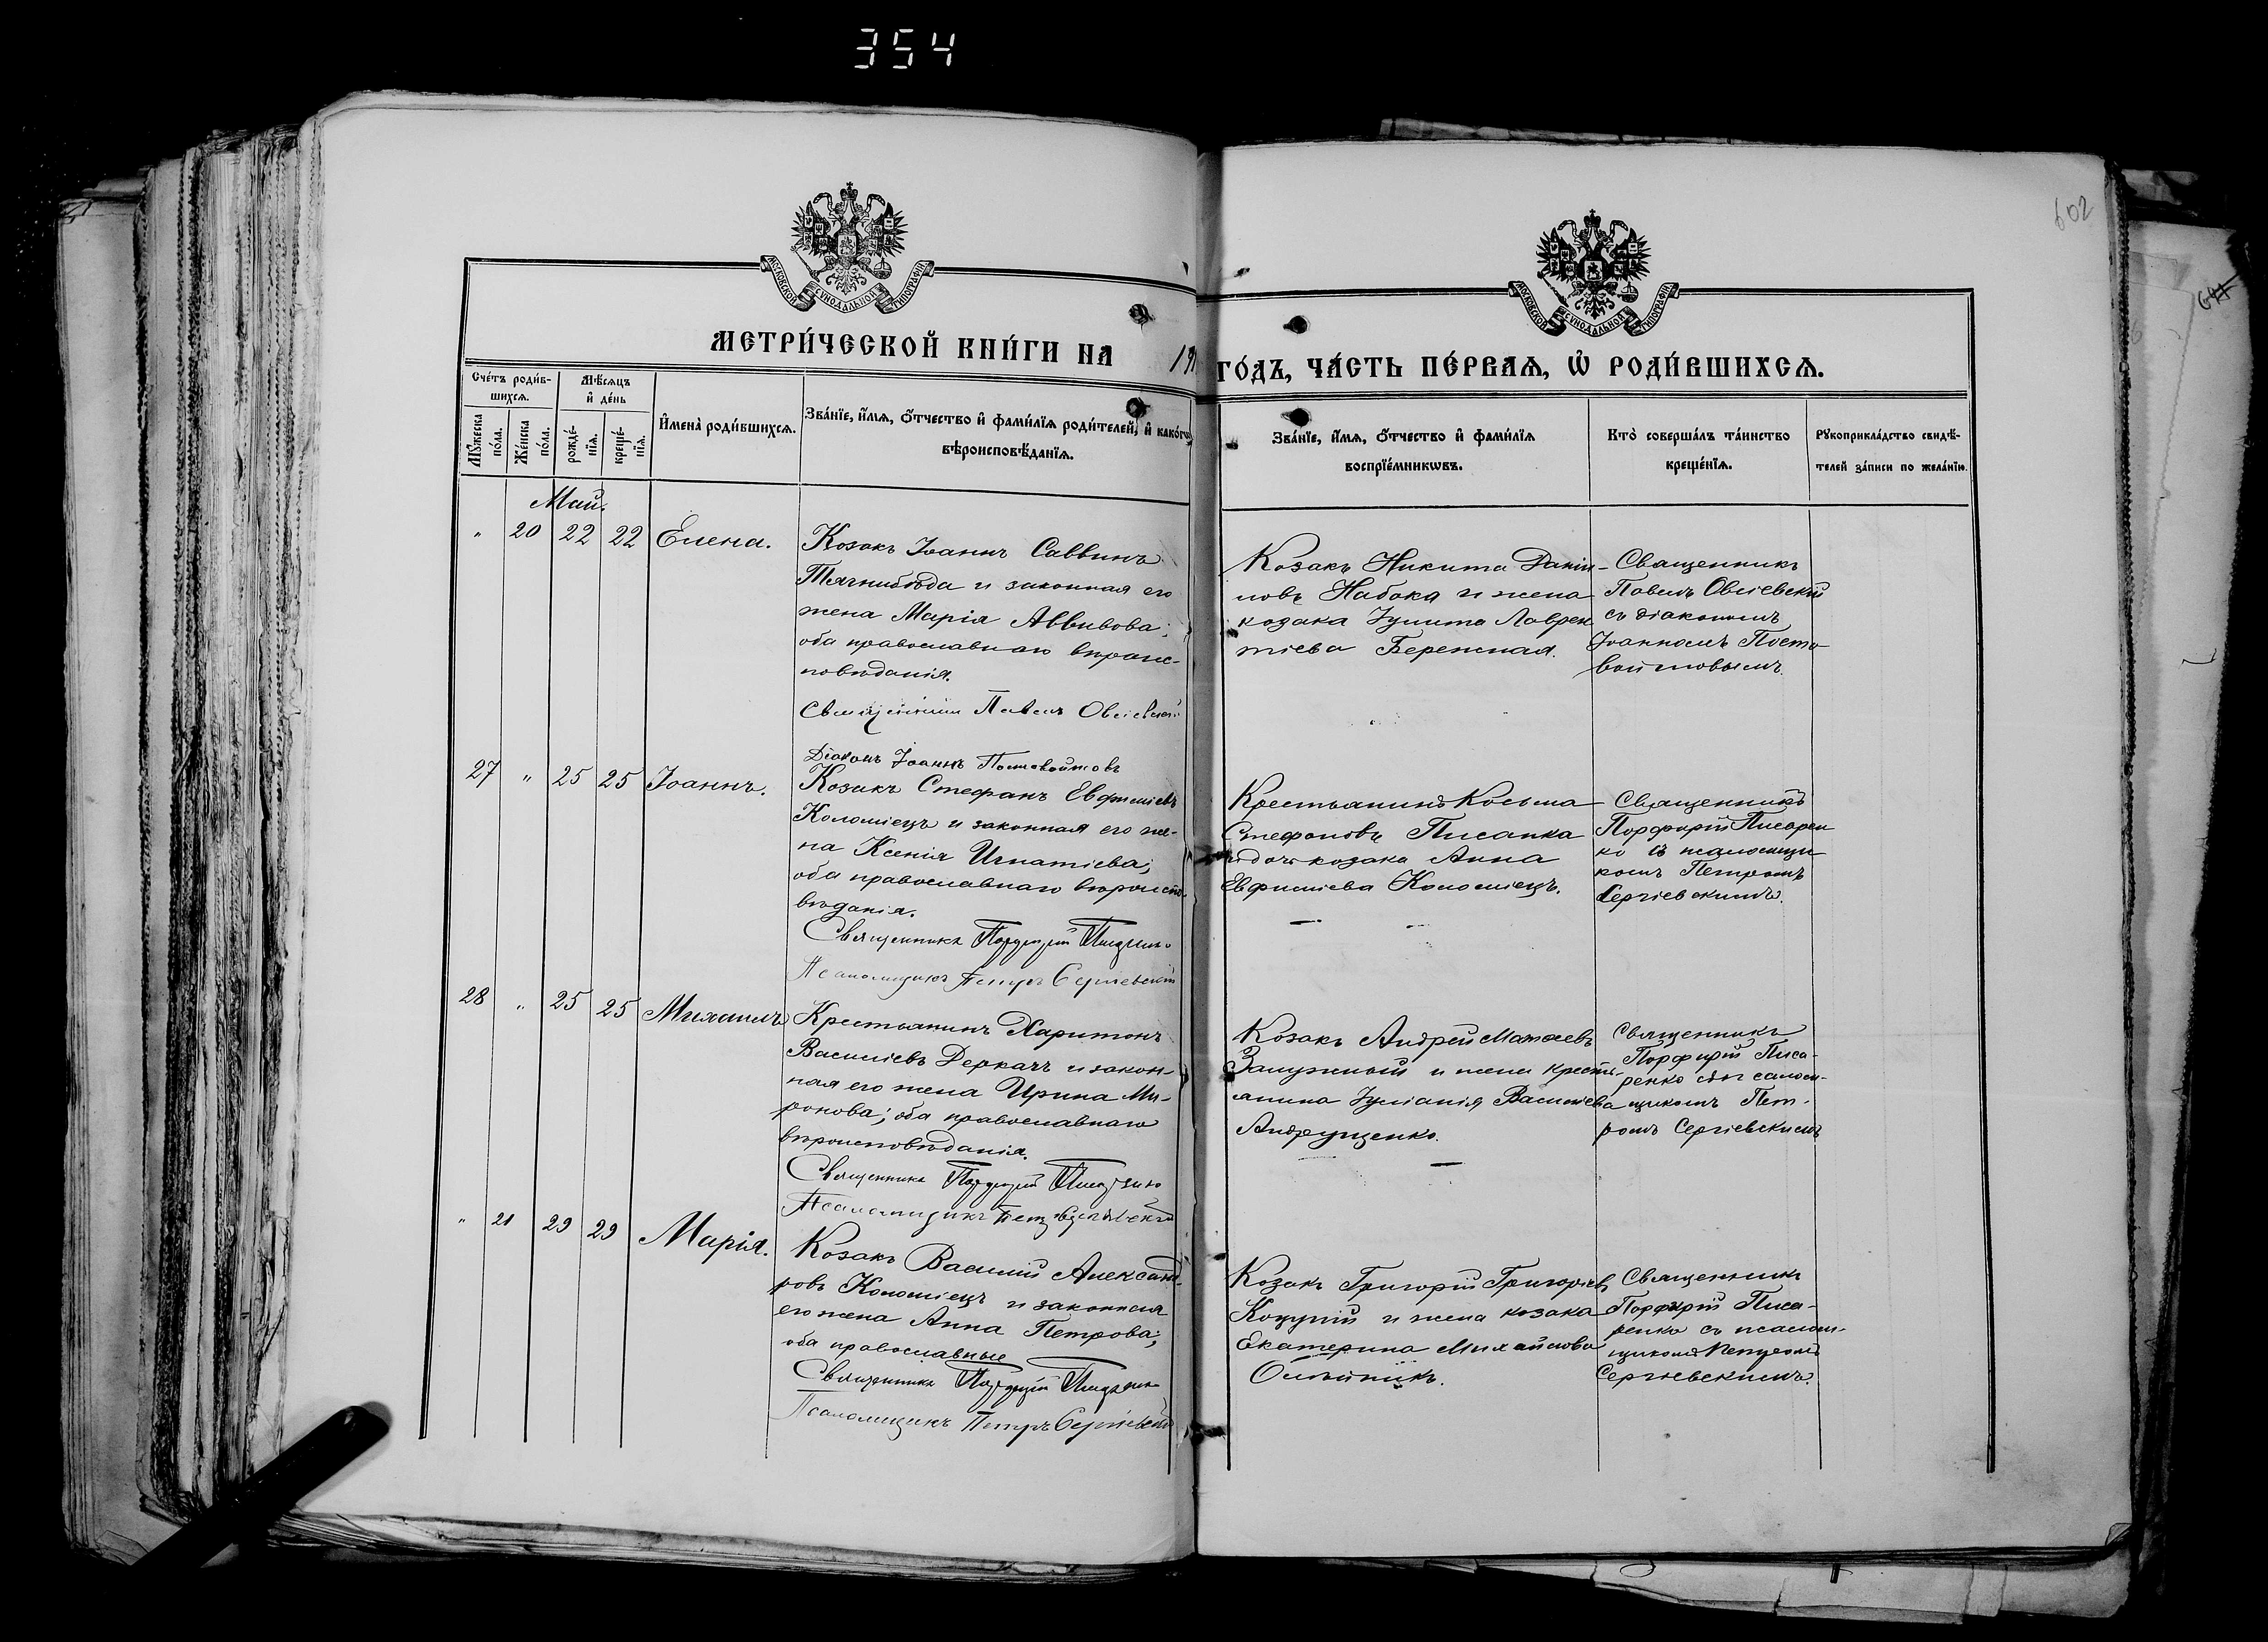 354
602
МОСКОВСКОЙ СѴНОДАЛЬНОЙ ТИПОГРАФІИ
МОСКОВСКОЙ СѴНОДАЛЬНОЙ ТИПОГРАФІИ
МЕТРИ́ЧЕСКОЙ КНИ́ГИ НА 191
ГО́ДЪ, ЧА́СТЬ ПЕ́РВАЯ, Ѡ҆ РОДИ́ВШИХСЯ.
Сче́тъ роди́в-
шихся.
Мꙋ́жеска
по́ла.
Же́нска
по́ла.
Мѣ́сяцъ
и҆ де́нь
рожде́-
нїя.
креще́-
нїя.
И҆мена̀ роди́вшихся.
Зва́нїе, и҆́мя, ѻ҆́тчество и҆ фами́лїя роди́телей, и҆ како́гѡ
вѣроисповѣ́данїя.
Зва́нїе, и҆́мя, ѻ҆́тчество и҆ фами́лїя
воспрїе́мникѡвъ.
Кто̀ соверша́лъ та́инство
креще́нїя.
Рꙋкоприкла́дство свидѣ́-
телей за́писи по жела́нїю.
Май.
" 20 22 22 Елена.
Козакъ Іоаннъ Саввинъ
Тягнибѣда и законная его
жена Марія Аввивова;
оба православнаго вѣроис-
повѣданія.
Священникъ Павелъ Овсіевскій
Діаконъ Іоаннъ Постовойтовъ
Козакъ Никита Даніи-
ловъ Набока и жена
козака Іулита Лаврен
тіева Бережная.
Священникъ
Павелъ Овсіевскій
съ діакономъ
Іоанномъ Посто
войтовымъ.
27 " 25 25 Іоаннъ.
Козакъ Стефанъ Евфиміевъ
Коломіецъ и законная его же-
на Ксенія Игнатіева;
оба православнаго вѣроиспо-
вѣданія.
Священникъ Порфирій Писаренко
Псаломщикъ Петръ Сергіевскій
Крестьянинъ Косьма
Стефановъ Писанка
и дочь козака Анна
Евфиміева Коломіецъ.
Священникъ
Порфирій Писарен
ко съ псаломщи
комъ Петромъ
Сергіевскимъ.
28 " 25 25 Михаилъ
Крестьянинъ Харитонъ
Василіевъ Деркачъ и закон-
ная его жена Ирина Ми-
ронова; оба православнаго
вѣроисповѣданія.
Священникъ Порфирій Писаренко
Псаломщикъ Петръ Сергіевскій
Козакъ Андрей Матѳеевъ
Залужный и жена кресть-
янина Іуліанія Василіева
Андрущенко.
Священникъ
Порфирій Писа-
ренко съ псалом-
щикомъ Пет-
ромъ Сергіевскимъ
" 21 29 29 Марія.
Козакъ Василій Александ-
ровъ Коломіецъ и законная
его жена Анна Петрова;
оба православные
Священникъ Порфирій Писаренко
Псаломщикъ Петръ Сергіевскій
Козакъ Григорій Григоріев
и жена козака
Екатерина Михайлова
Олѣйникъ.
Священникъ
Порфирій Писа-
ренко съ псалом-
щикомъ Петромъ
Сергіевскимъ.